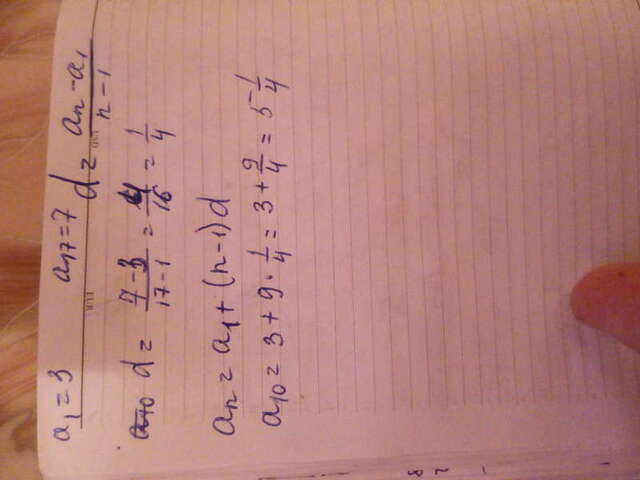 a₁ = 3 a₁₇ = 7 d = (aₙ - a₁)/(n - 1)
d = (7 - 3)/(17 - 1) = 4/16 = 1/4
aₙ = a₁ + (n - 1)d
a₁₀ = 3 + 9 · 1/4 = 3 + 9/4 = 5 1/4